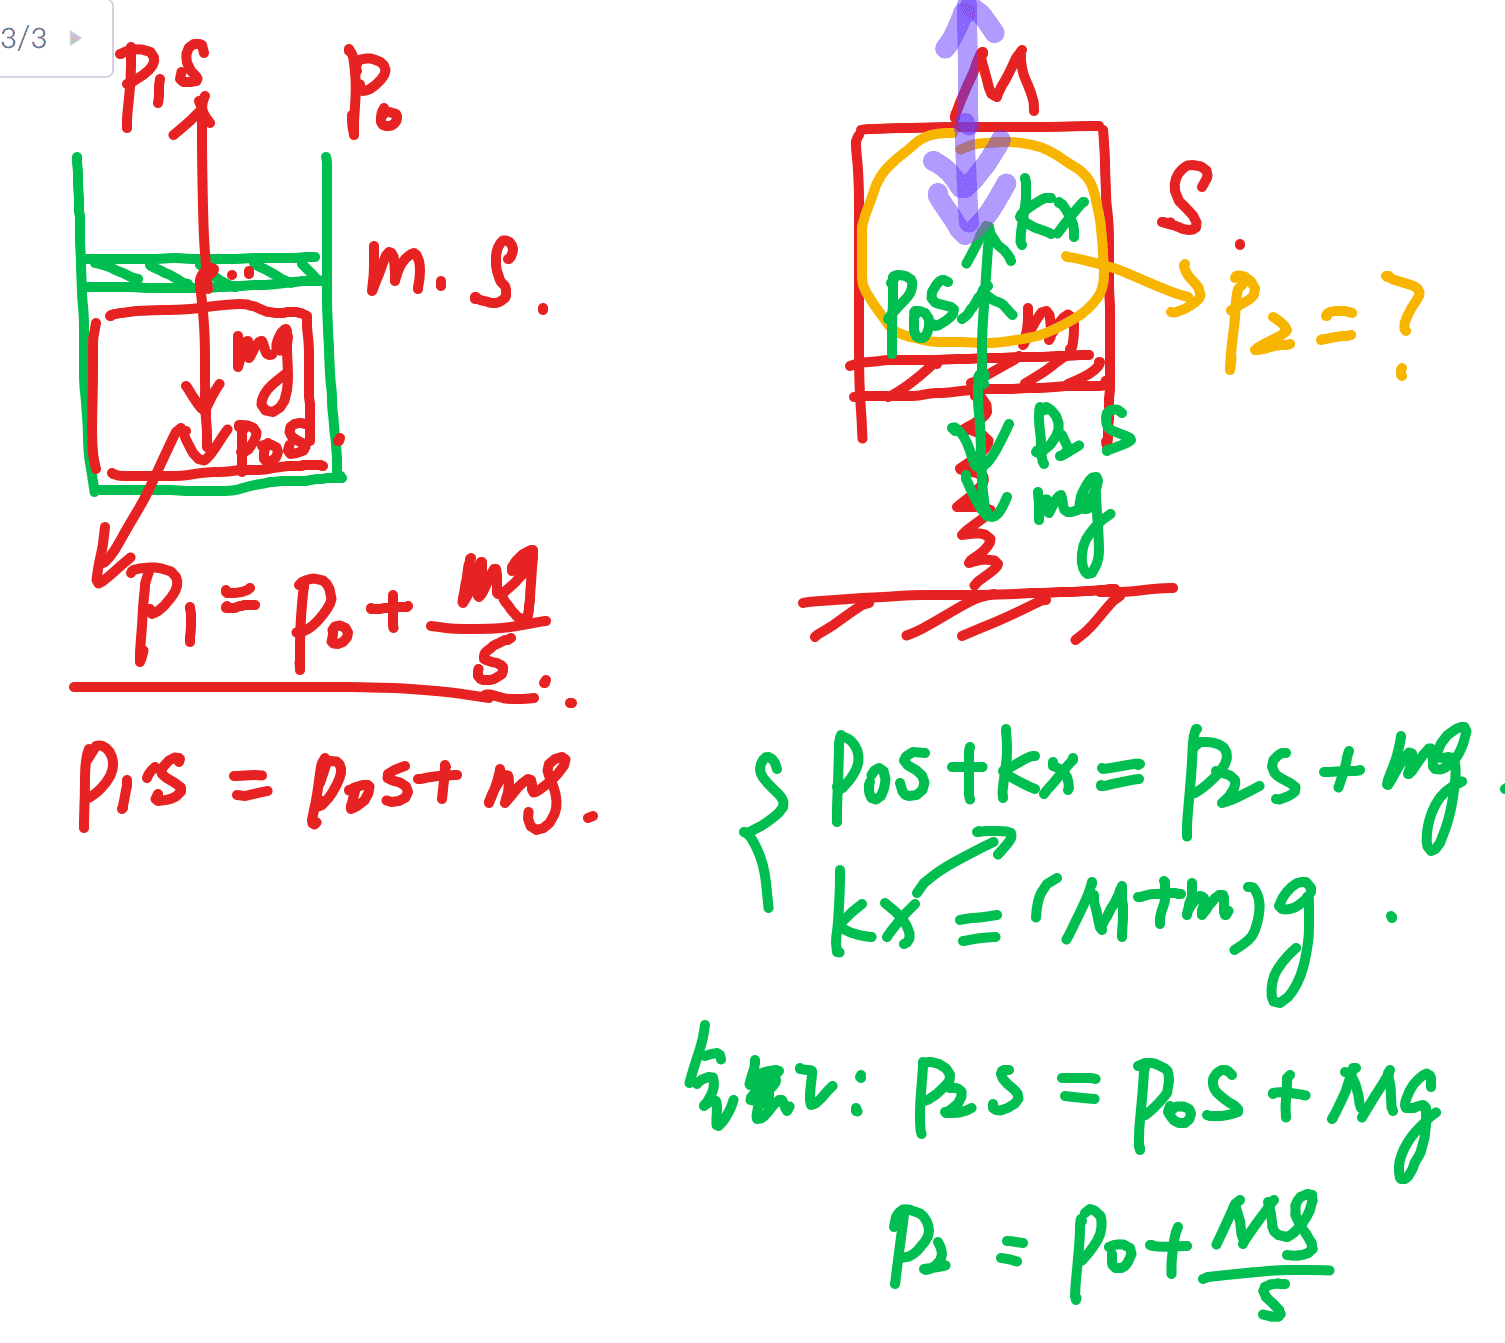 3/3
p₁s
p₀
m . s .
mg
p₀s
p₁ = p₀ + mg/s
p₁s = p₀s + mg .
M
s .
kx
p₀s
m
p₂ = ?
p₂s
mg
p₀s + kx = p₂s + mg .
kx = (M+m)g .
p₂s = p₀s + Mg
p₂ = p₀ + Mg/s